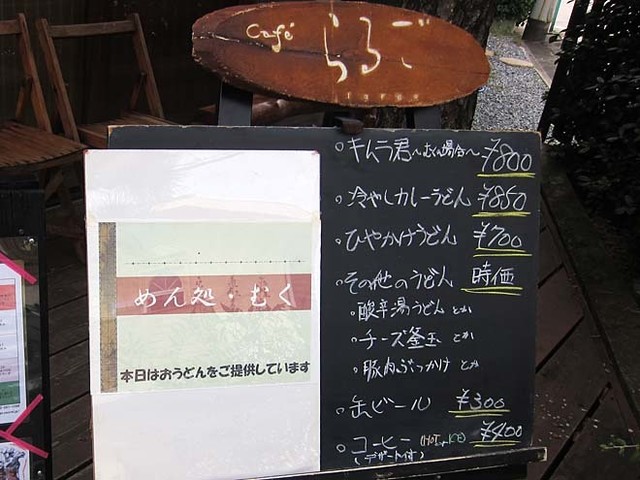 Café らるご
largo
めん処・むく
本日はおうどんをご提供しています
。キムラ君〜むくの場合〜 ¥800
。冷やしカレーうどん ¥850
。ひやかけうどん ¥700
。その他のうどん 時価
・酸辛湯うどん とか
・チーズ釜玉 とか
・豚肉ぶっかけ とか
。缶ビール ¥300
。コーヒー (HOT or ICE) ¥400
(デザート付き)